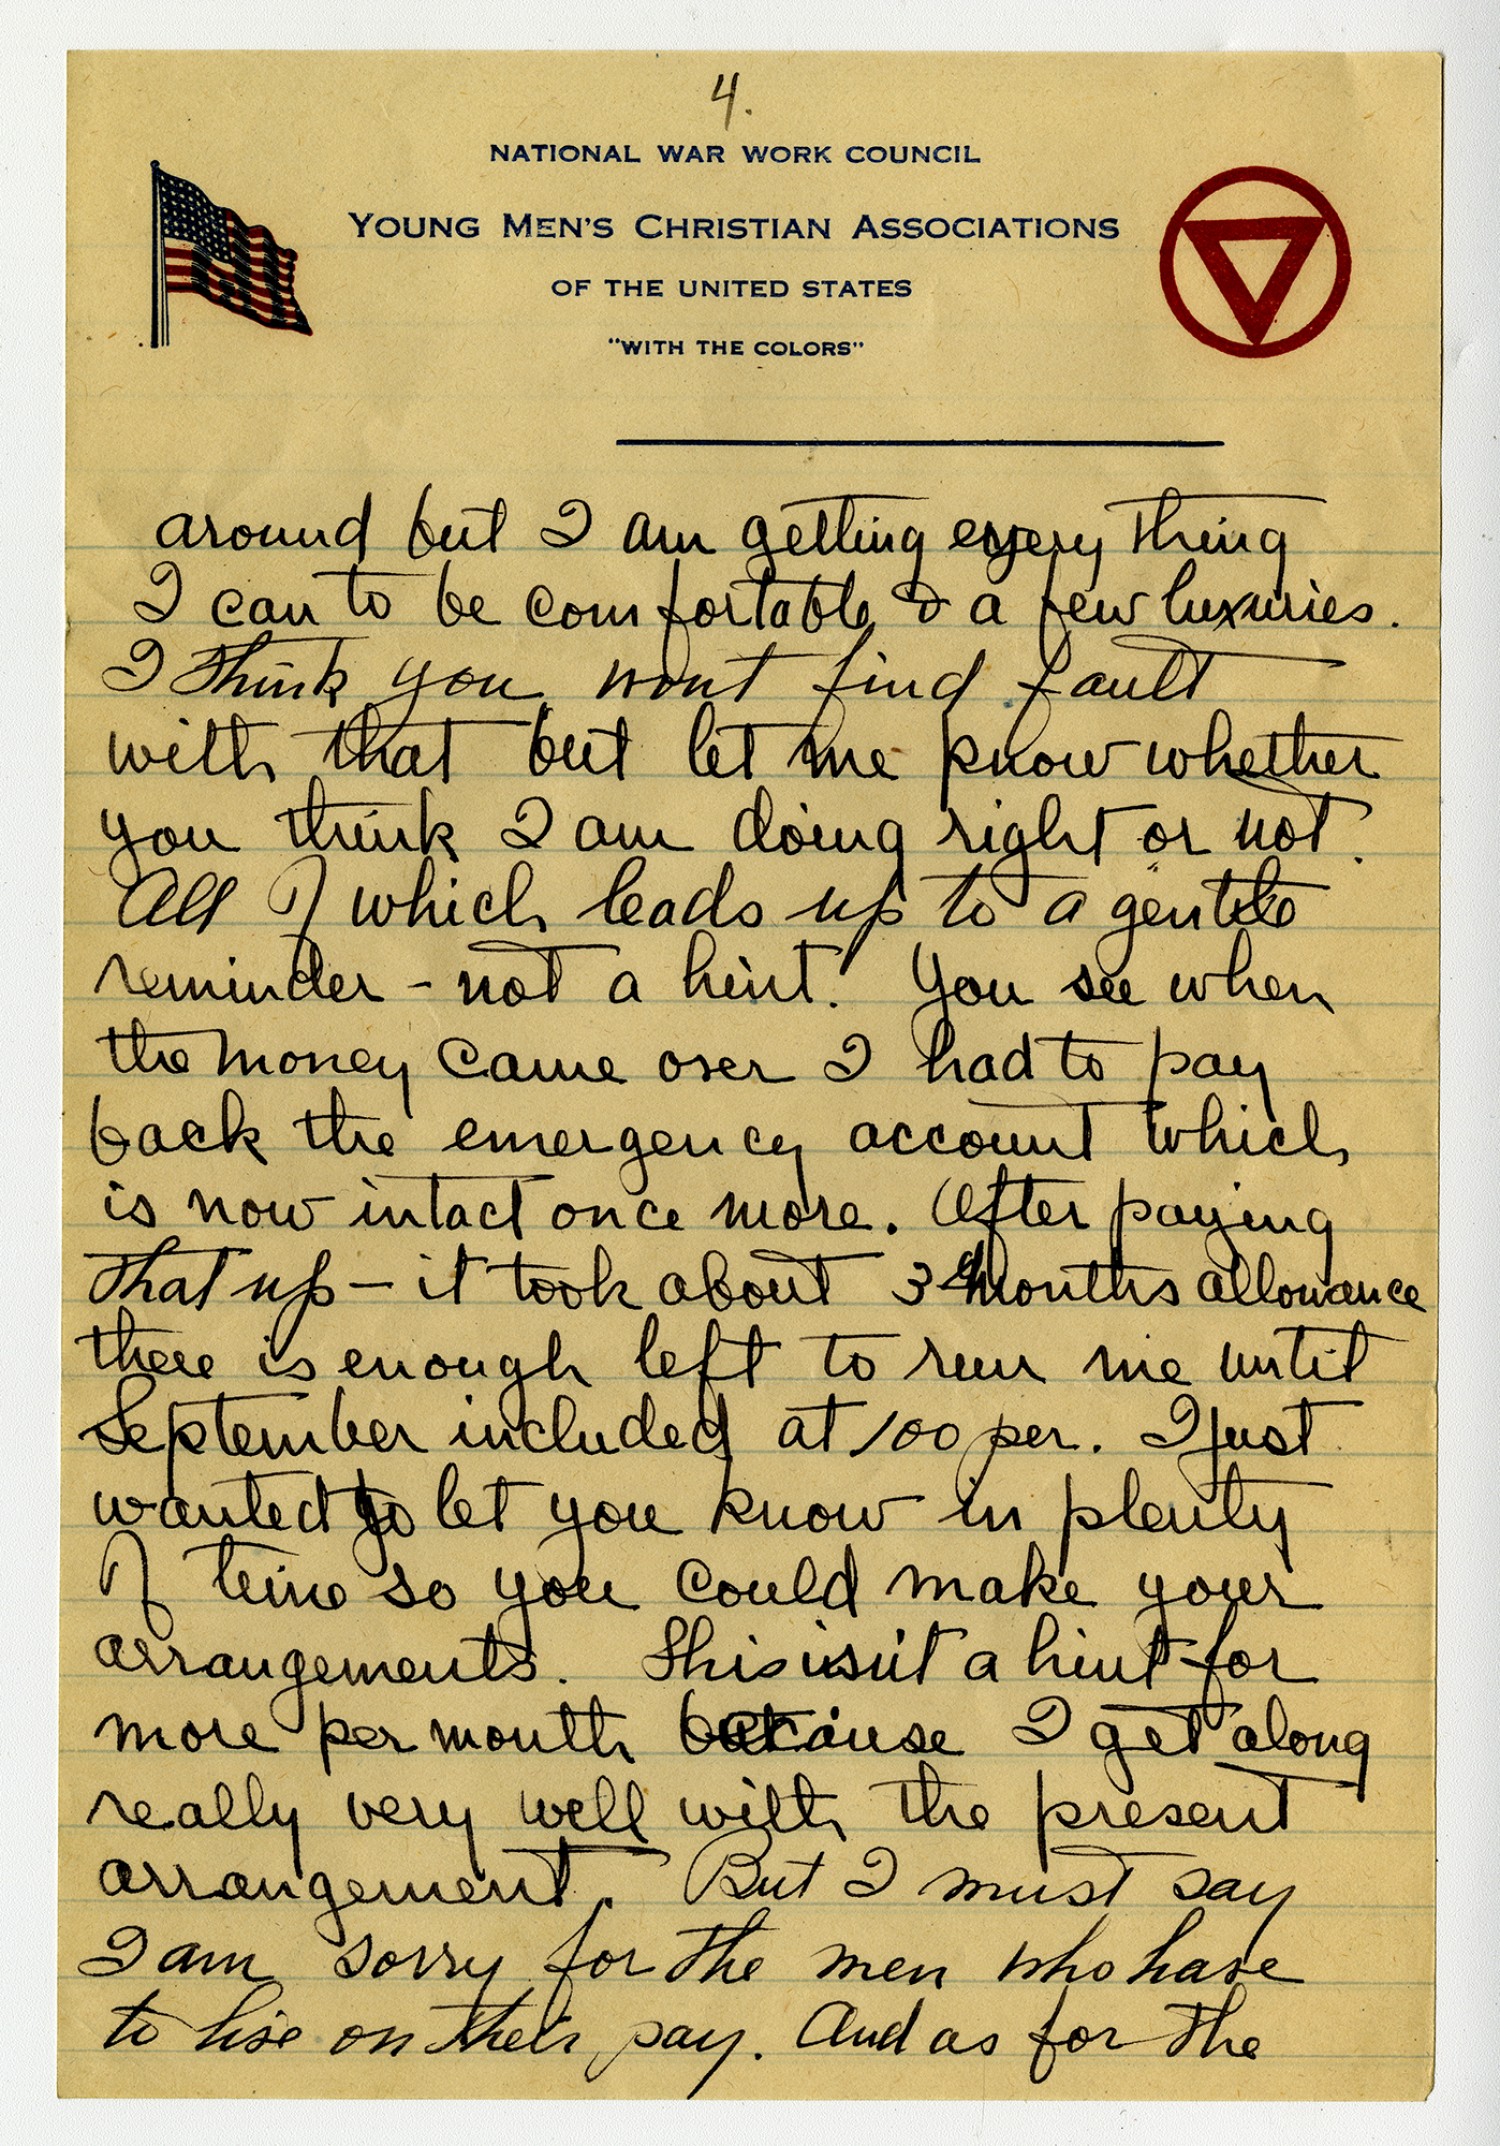 4.
NATIONAL WAR WORK COUNCIL
YOUNG MEN'S CHRISTIAN ASSOCIATIONS
OF THE UNITED STATES
"WITH THE COLORS"
around but I am getting every thing
I can to be comfortable & a few luxuries.
I think you wont find fault
with that but let me know whether
you think I am doing right or not.
All of which leads up to a gentle
reminder - not a hint! You see when
the money came over I had to pay
back the emergency account which
is now intact once more. After paying
that up - it took about 3 months allowance
there is enough left to run me until
September included at 100 per. I just
wanted to let you know in plenty
of time so you could make your
arrangements. This isn't a hint for
more per month because I get along
really very well with the present
arrangement. But I must say
I am sorry for the men who have
to live on their pay. And as for the